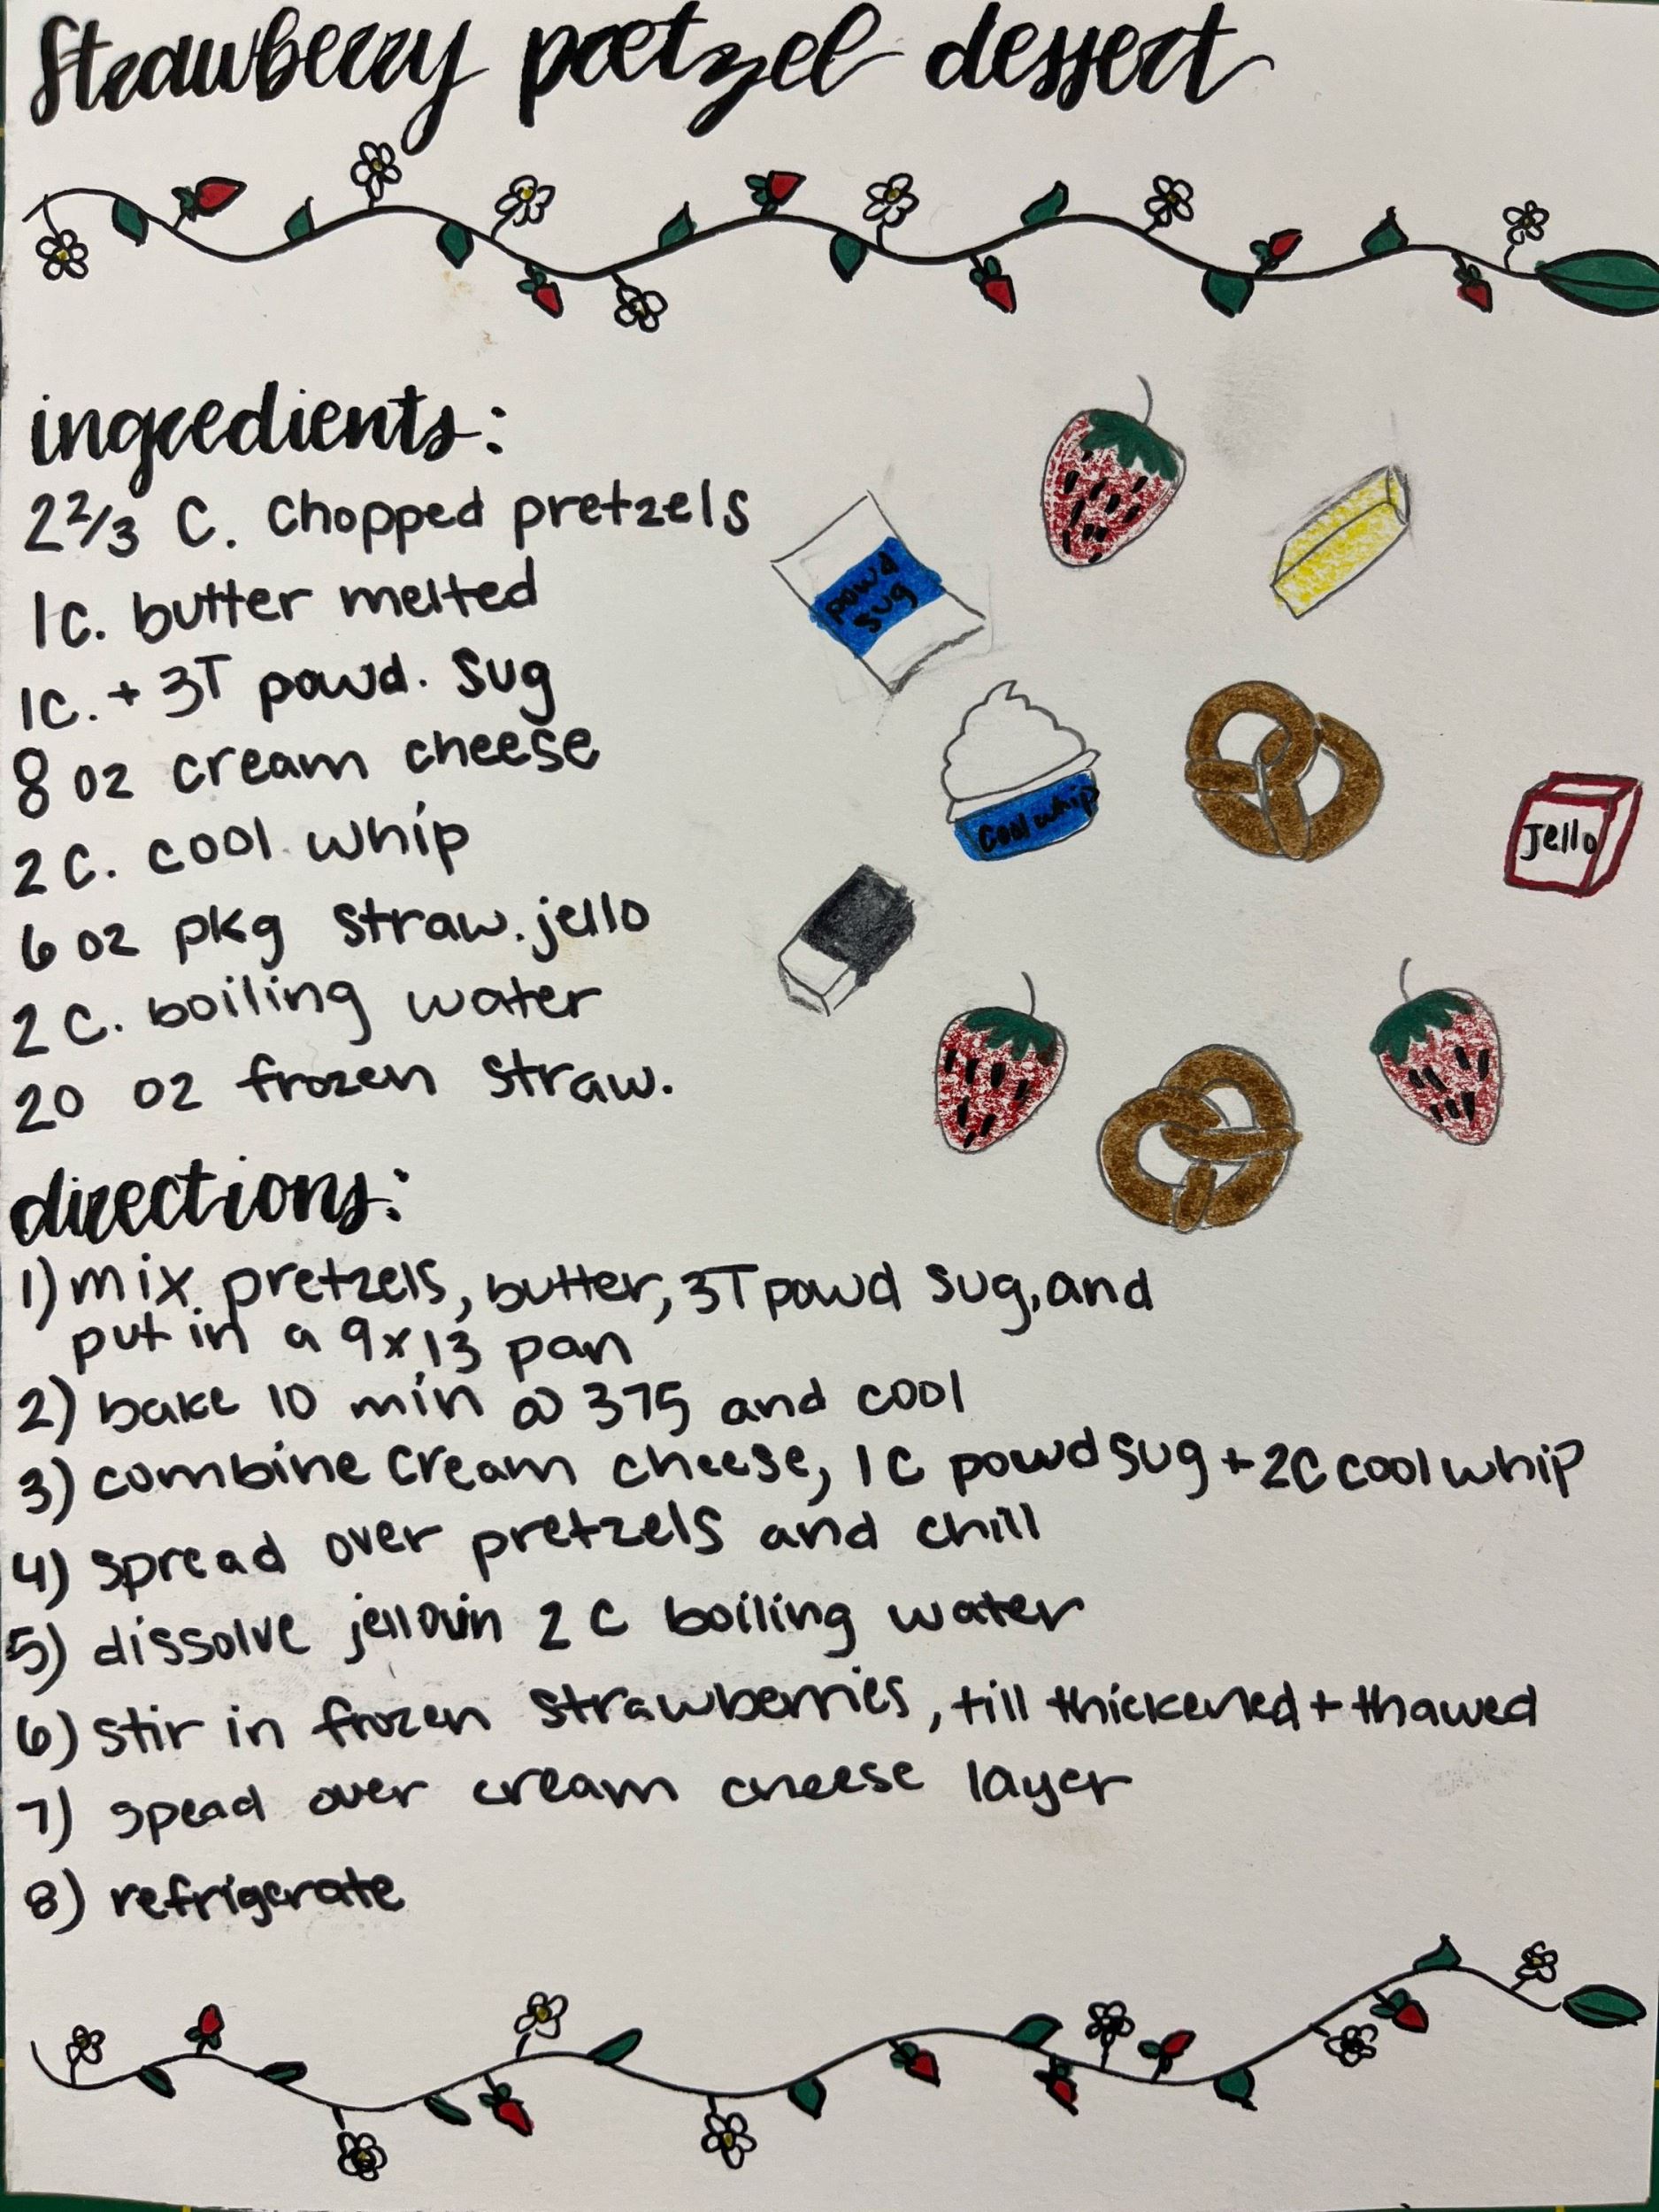 Strawberry pretzel dessert
ingredients:
2 2/3 C. Chopped pretzels
1c. butter melted
1c. + 3T powd. sug
8 oz cream cheese
2 C. cool whip
6 oz pkg straw. jello
2 C. boiling water
20 oz frozen straw.
powd
sug
Cool whip
Jello
directions:
1) mix pretzels, butter, 3T powd sug, and
put in a 9x13 pan
2) bake 10 min @ 375 and cool
3) combine cream cheese, 1C powd sug + 2C cool whip
4) spread over pretzels and chill
5) dissolve jello in 2 C boiling water
6) stir in frozen strawberries, till thickened + thawed
7) spead over cream cheese layer
8) refrigerate